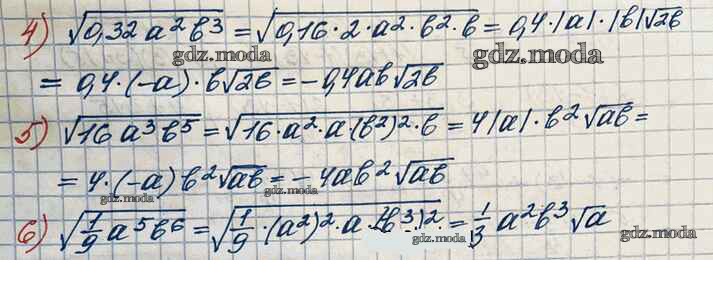 4) √0,32 a²b³ = √0,16·2·a²·b²·b = 0,4·|a|·|b|√2b
gdz.moda gdz.moda
= 0,4·(-a)·b√2b = -0,4ab√2b
gdz.moda
5) √16 a³b⁵ = √16·a²·a·(b²)²·b = 4|a|·b²√ab =
gdz.moda
= 4·(-a) b²√ab = -4ab²√ab
gdz.moda gdz.moda
6) √1/9 a⁵b⁶ = √1/9·(a²)²·a·(b³)² = 1/3 a²b³√a
gdz.moda gdz.moda